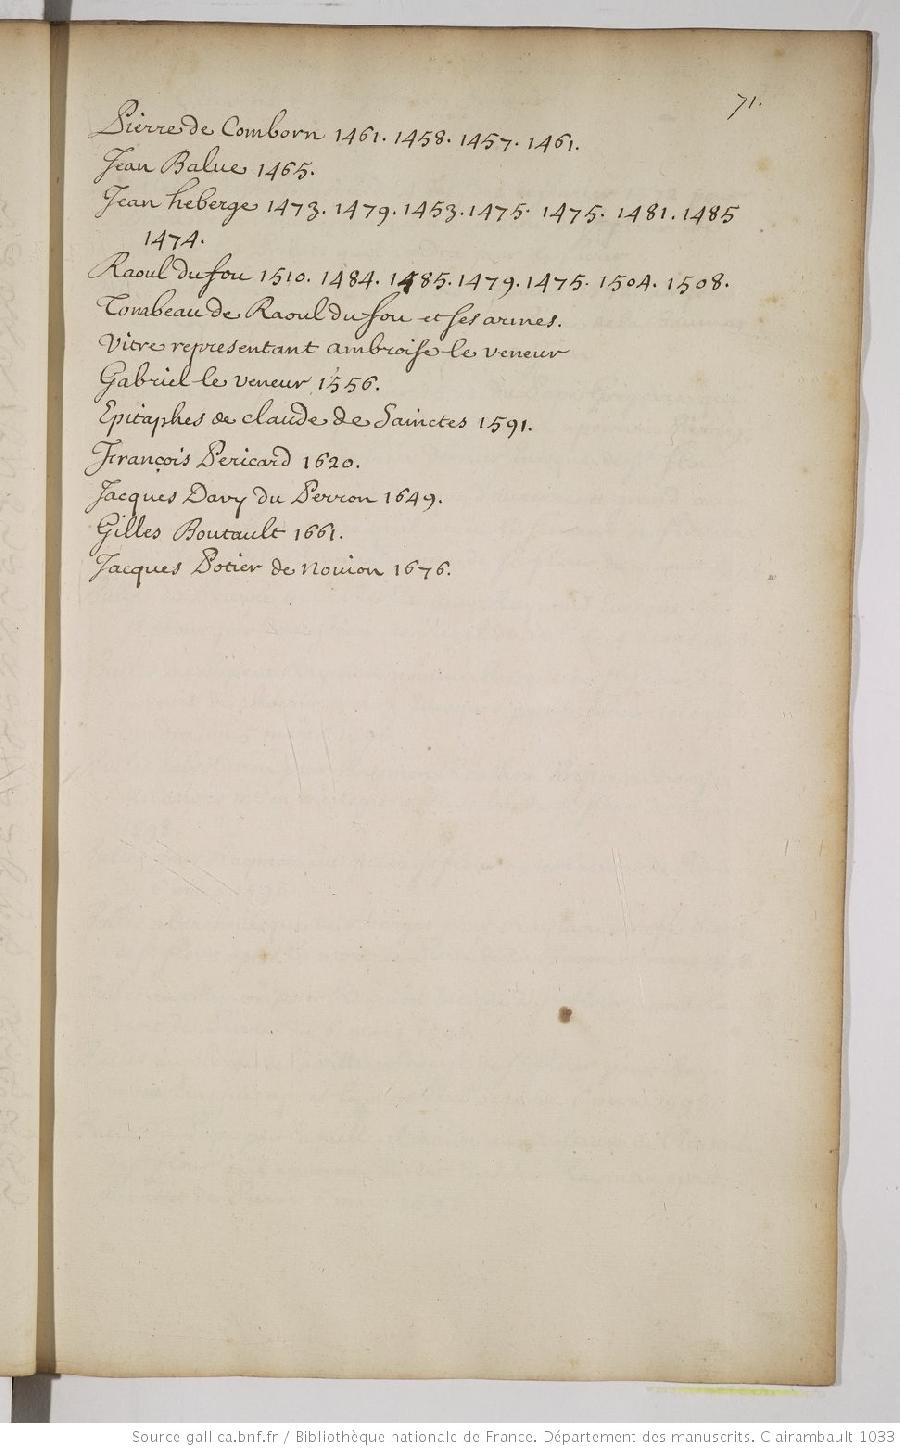 71.
Pierre de Comborn 1461. 1458. 1457. 1461.
Jean Balue 1465.
Jean heberge 1473. 1479. 1453. 1475. 1475. 1481. 1485
1474.
Raoul du fou 1510. 1484. 1485. 1479. 1475. 1504. 1508.
Tombeau de Raoul du fou et ses armes.
Vitre representant ambroise le veneur
Gabriel le veneur 1556.
Epitaphes de claude de Sainctes 1591.
François Pericard 1620.
Jacques Davy du Perron 1649.
Gilles Boutault 1661.
Jacques Potier de novion 1676.
Source gallica.bnf.fr / Bibliothèque nationale de France. Département des manuscrits. Clairambault 1033